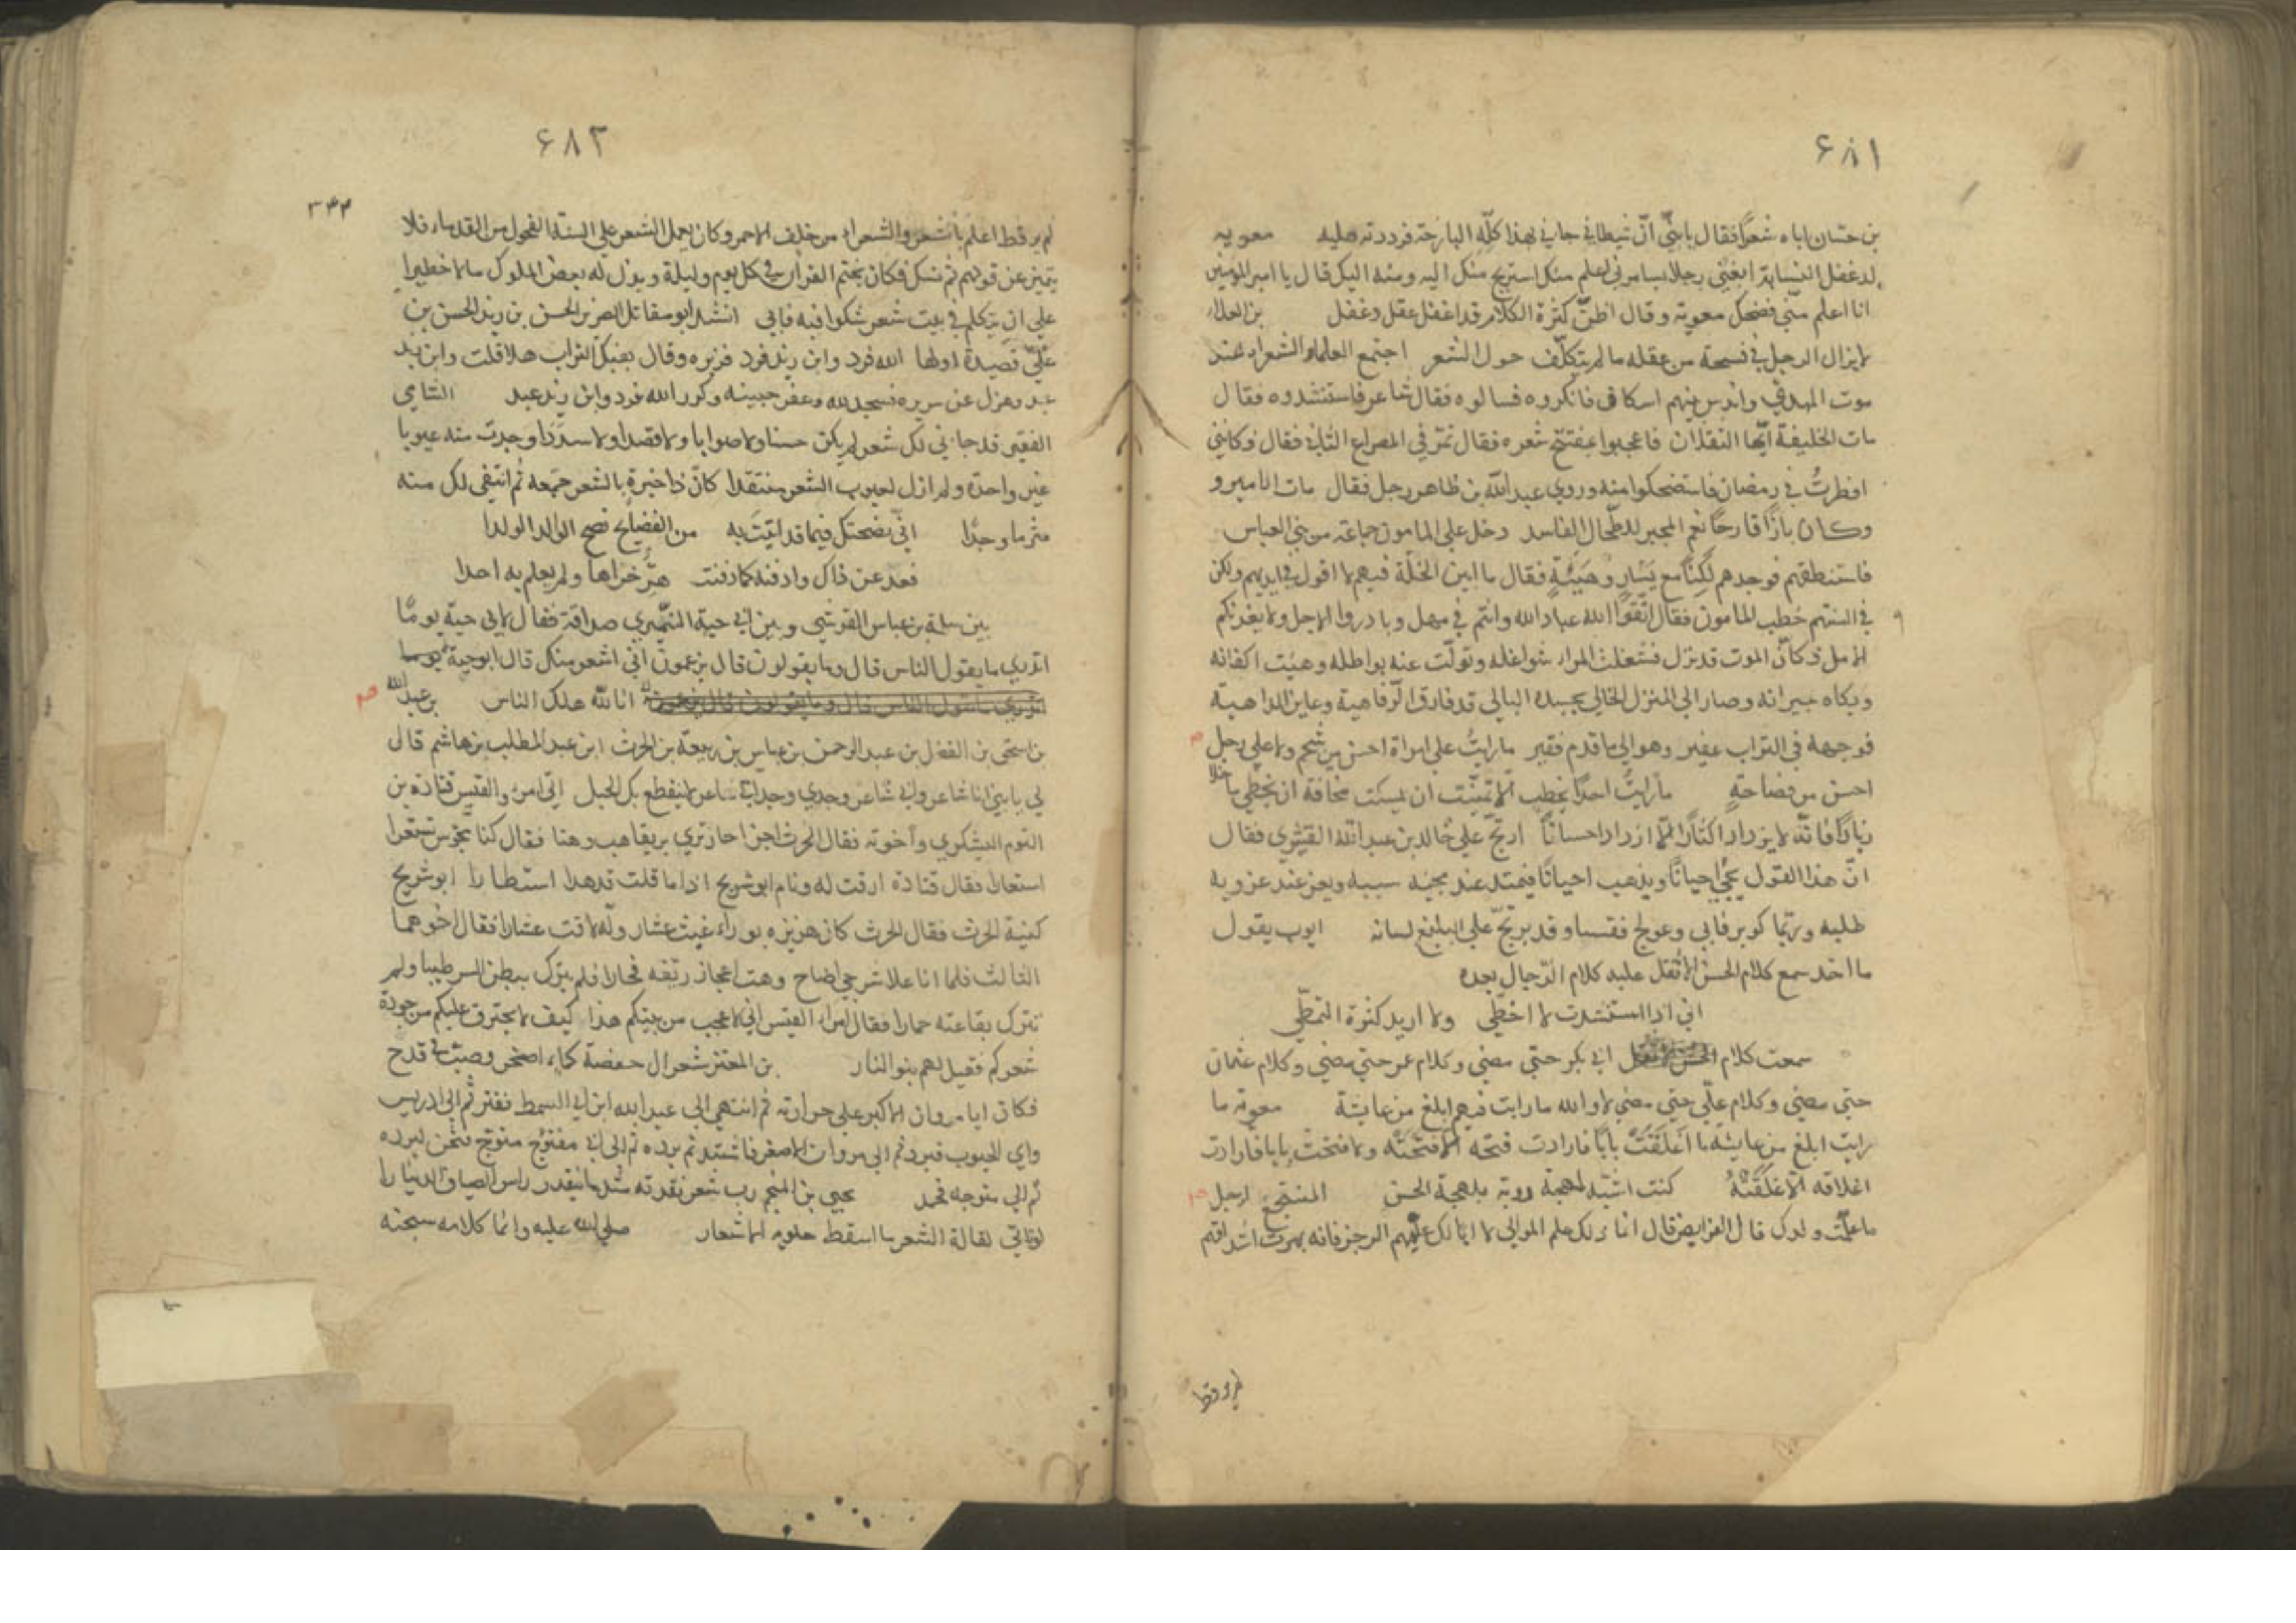 ۶۸۱
بن حسان اباه شعرًا فقال يا بنيّ انّ شيطاني جاني بهذا كلّه البارحة فرددته عليه معويه
لدغفل النسابة ابغني رجلا يسامرني اعلم منك استريح منك اليه ومنه اليك قال يا امير المومنين
انا اعلم منّي فضحك معوية وقال اظنّ كثرة الكلام قد اغفل عقل دغفل بن العلاء
لا يزال الرجل في فسحة من عقله ما لم يتكلّف حول الشعر اجتمع العلماء والشعراء عند
موت المهدي واندس بينهم اسكاف فانكروه فسالوه فقال شاعر فاستنشدوه فقال
مات الخليفة ايّها الثقلان فاعجبوا بمفتتح شعره فقال تمّ في المصراع الثاني فقال فكانني
افطرتُ في رمضان فاستضحكوا منه وروي عبد اللّه بن طاهر رجل فقال مات الامير و
وكان بازًا قارحًا نعم المجير للطحال الفاسد دخل على المامون جماعة من بني العباس
فاستنطقهم فوجدهم لُكْنًا مع يَسَارٍ وهَيْئَةٍ فقال ما ابين الخلّة فيهم لا اقول في ايديهم ولكن
في السنتهم خطب المامون فقال اتّقوا الله عباد الله وانتم في مهل وبادروا الاجل ولا يغرنكم
الامل فكانّ الموت قد نزل فشغلت المراء شواغله وتولّت عنه بواطله وهيئت اكفانه
وبكاه جيرانه وصار الى المنزل الخالي بجسده البالي قد فارق الرّفاهية وعاين الداهية
فوجهه في التراب عفير وهو الى ما قدم فقير ما رايتُ على امراة احسن من شحم ولا على رجل
احسن من فصاحةٍ ما رايتُ احدًا يخطب الّا تمنّيت ان يسكت مخافة ان يخطي ما خلا
زيادًا فانّه لا يزداد اكثارًا الّا ازداد احسانًا ارتجّ على خالد بن عبد اللّه القشري فقال
انّ هذا القول يجيْ احيانًا ويذهب احيانًا فيمتد عند مجيئه سببه ويعز عند عزوبه
طلبه وربّما كوبر فابي وعولج فقسا وقد يرتجّ على البليغ لسانه ايوب يقول
ما احد سمع كلام الحسن الّا ثقل عليه كلام الرّجال بعده
اني اذا استنشدت لا اخطّي ولا اريد كثرة التمطّي
سمعت كلام ابي بكر حتى مضي وكلام عمر حتى مضي وكلام عثمان
حتى مضي وكلام عليّ حتى مضي لا والله ما رايت فيهم ابلغ من عايشة معوية ما
رايت ابلغ من عايشة ما اَغلَقَتْ بابًا فارادت فتحه الّا فتَحَتْه ولا فتحت بابا فارادت
اغلاقه الّا اغلَقَتْهُ كنت اشبّه لهجة روبة بلهجة الحسن المنتجع لرجل
ما علّمت ولدك قال الفرايض قال انا ذلك علم الموالي لا ابا لك علّمهم الرجز فانه يهرت اشداقهم
لم ير قط
۶۸۳
۳۴۴
لم ير قط اعلم بالشعر والشعراء من خلف الاحمر وكان يعمل الشعر على السنة الفحول من القدماء فلا
يتميز عن قولهم ثم تنسك فكان يختم القران في كل يوم وليلة وبذل له بعض الملوك مالا خطيرا
على ان يتكلم في بيت شعر شكوا فيه فابي انشد ابو مقاتل الضرير الحسن بن زيد الحسن بن
عليّ قصيدة اولها الله فرد وابن زيد فرد فزبره وقال بفيك التراب هلا قلت وابن زيد
عبد ونزل عن سريره فسجد لله وعفر جبينه وكرر الله فرد وابن زيد عبد الشامي
الفقير قد جاني لك شعر لم يكن حسنا ولا صوابا ولا قصدا ولا سددا وجدت منه عيوبا
غير واحدة ولم ازل لعيوب الشعر منتقدا كانّ ذا خبرةٍ بالشعر جمّعه ثم انتقى لك منه
شر ما وجدا اني نصحتك فيما قد اتيتَ به من الفضايح نصح الوالد الولدا
فعد عن ذاك وادفنه كما دفنت هرّ خراها ولم يعلم به احدا
بين سلمة بن عباس القرشي وبين ابي حية النميري صداقة فقال لابي حية يومًا
اتدري ما يقول الناس قال وما يقولون قال يزعمون اني اشعر منك قال ابو حية يوما
اتدري ما يقول الناس قال وما يقولون قال يزعمون انا للّه هلك الناس بن عبد الله
بن اسحق بن الفضل بن عبد الرحمن بن عباس بن ربيعة بن الحرث ابن عبد المطلب بن هاشم قال
لي يا بنيّ انا شاعر وابي شاعر وجدي وجد ابي شاعر لا ينقطع بك الحبل اتى امرؤ القيس قتادة بن
التوم اليشكري واخوته فقال الحرث اجز احار تري بريقا هب وهنا فقال كنار مجوس تستعر
استعارا فقال قتادة ارقت له ونام ابو شريح اذا ما قلت قد هدا استطارا ابو شريح
كنية الحرث فقال الحرث كان هزيزه بوراء غيث عشار ولّه لاقت عشارا فقال اخوهما
الثالث فلما ان علا شرجي اضاح وهت اعجاز ريّقه فحارا فلم يترك ببطن السر ظبيا ولم
تترك بقاعته حمارا فقال امراء القيس اني لاعجب من بيتكم هذا كيف لا يحترق عليكم من جودة
شعركم فقيل لهم بنو النار بن المعتز شعر ال حفصة كماء اسخن وصبّ في قدح
فكان ايام مروان الاكبر على حرارته ثم انتهى الي عبد الله ابن ابي السمط ففتر ثم الى ادريس
وابي الجنوب فبرد ثم الى مروان الاصغر فاشتد برده ثم الى ابي مفتوج متوج فثخن لبرده
ثم الى متوجه فجمد يحيى بن المنجم رب شعر نقدته مثل ما ينقد راس الصيارف الدينارا
لقالة الشعر ما اسقط حلوبه الاشعار صلى الله عليه وانما كلامه سبحته